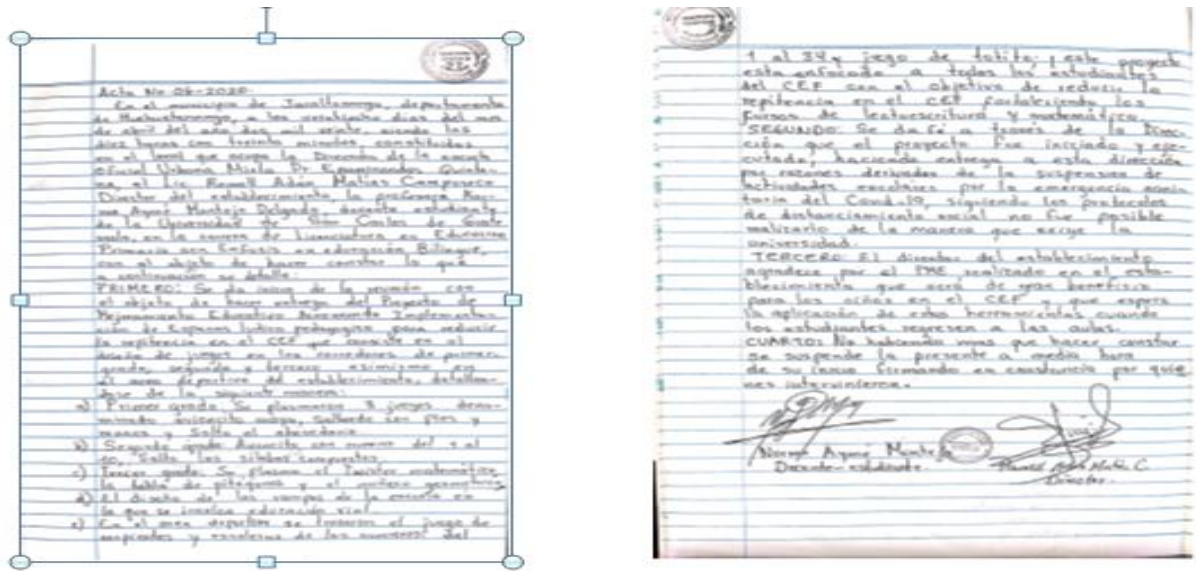 Acta No. 06-2020
En el municipio de Jacaltenango, departamento
de Huehuetenango, a los veintiocho días del mes
de abril del año dos mil veinte, siendo las
diez horas con treinta minutos, constituidos
en el local que ocupa la Dirección de la escuela
Oficial Urbana Mixta Dr Epaminondas Quinta-
na, el Lic Romell Adán Matías Camposeco
Director del establecimiento, la profesora
Aymé Montejo Delgado, docente estudiante
de la Universidad de San Carlos de Guate
mala, en la carrera de Licenciatura en Educación
Primaria con Enfasis en educación Bilingüe,
con el objeto de hacer constar lo que
a continuación se detalla:
PRIMERO: Se da inicio de la reunión con
el objeto de hacer entrega del Proyecto de
Mejoramiento Educativo Implementa-
ción de Espacios lúdico pedagógico para reducir
la repitencia en el CEF que consiste en el
diseño de juegos en los corredores de primer
grado, segundo y tercero asimismo en
el area deportiva del establecimiento, detallan-
dose de la siguiente manera:
a) Primer grado. Se plasmaron 3 juegos deno-
minado avioncito maya, saltando con pies y
manos y Salto el abecedario.
b) Segundo grado Avioncito con numeros del 1 al
10, Salto las sílabas compuestas.
c) Tercer grado. Se plasma el Twister matemático,
la tabla de pitágoras y el muñeco geométrico,
d) El diseño de las rampas de la escuela en
la que se implica educación vial.
e) En el area deportiva se trazaron el juego de
serpientes y escaleras de los numeros del
1 al 34 y juego de totito, este proyecto
esta enfocado a todos los estudiantes
del CEF con el objetivo de reducir la
repitencia en el CEF fortaleciendo los
cursos de lectoescritura y matemática.
SEGUNDO: Se da fé a traves de la Direc-
ción que el proyecto fue iniciado y eje-
cutado, haciendo entrega a esta dirección
por razones derivadas de la suspensión de
actividades escolares por la emergencia sani-
taria del Covid-19, siguiendo los protocolos
de distanciamiento social no fue posible
realizarlo de la manera que exige la
universidad.
TERCERO: El director del establecimiento
agradece por el PME realizado en el esta-
blecimiento que será de gran beneficio
para los niños en el CEF y que espera
la aplicación de estas herramientas cuando
los estudiantes regresen a las aulas.
CUARTO: No habiendo mas que hacer constar
se suspende la presente a media hora
de su inicio firmando en constancia por quie
nes intervinieron.
Aymé Montejo
Docente-estudiante
Romell Adán Matías C.
Director.